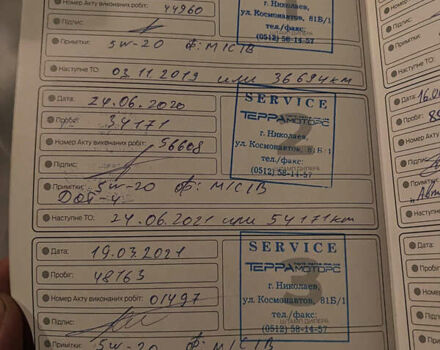 Номер Акту виконаних робіт: 44960
Підпис:
Примітки: 5W-20 Ф: М/С/В
Наступне ТО: 03.11.2019 или 36694км
г. Николаев,
ул. Космонавтов 81Б/1
тел./факс:
(0512) 58-14-57
Дата: 24.06.2020
Пробіг: 34171
Номер Акту виконаних робіт: 56608
Підпис:
Примітки: 5W-20 Ф: М/С/В
DOT-4
Наступне ТО: 24.06.2021 или 54171км
SERVICE
ТЕРРАМОТОРС
г. Николаев,
ул. Космонавтов, 81Б/1
тел./факс:
(0512) 58-14-57
Дата: 19.03.2021
Пробіг: 48763
Номер Акту виконаних робіт: 01497
Підпис:
Примітки: 5W-20 Ф: М/С/В
SERVICE
ТЕРРАМОТОРС
3
г. Николаев,
ул. Космонавтов, 81Б/1
тел./факс:
ШТАМП ДИЛЕРА
(0512) 58-14-57
Дата:
16.0
Пробіг:
Номер
Підпис:
Приміт
Наступ
Дата:
Пробіг:
Номер А
Підпис: